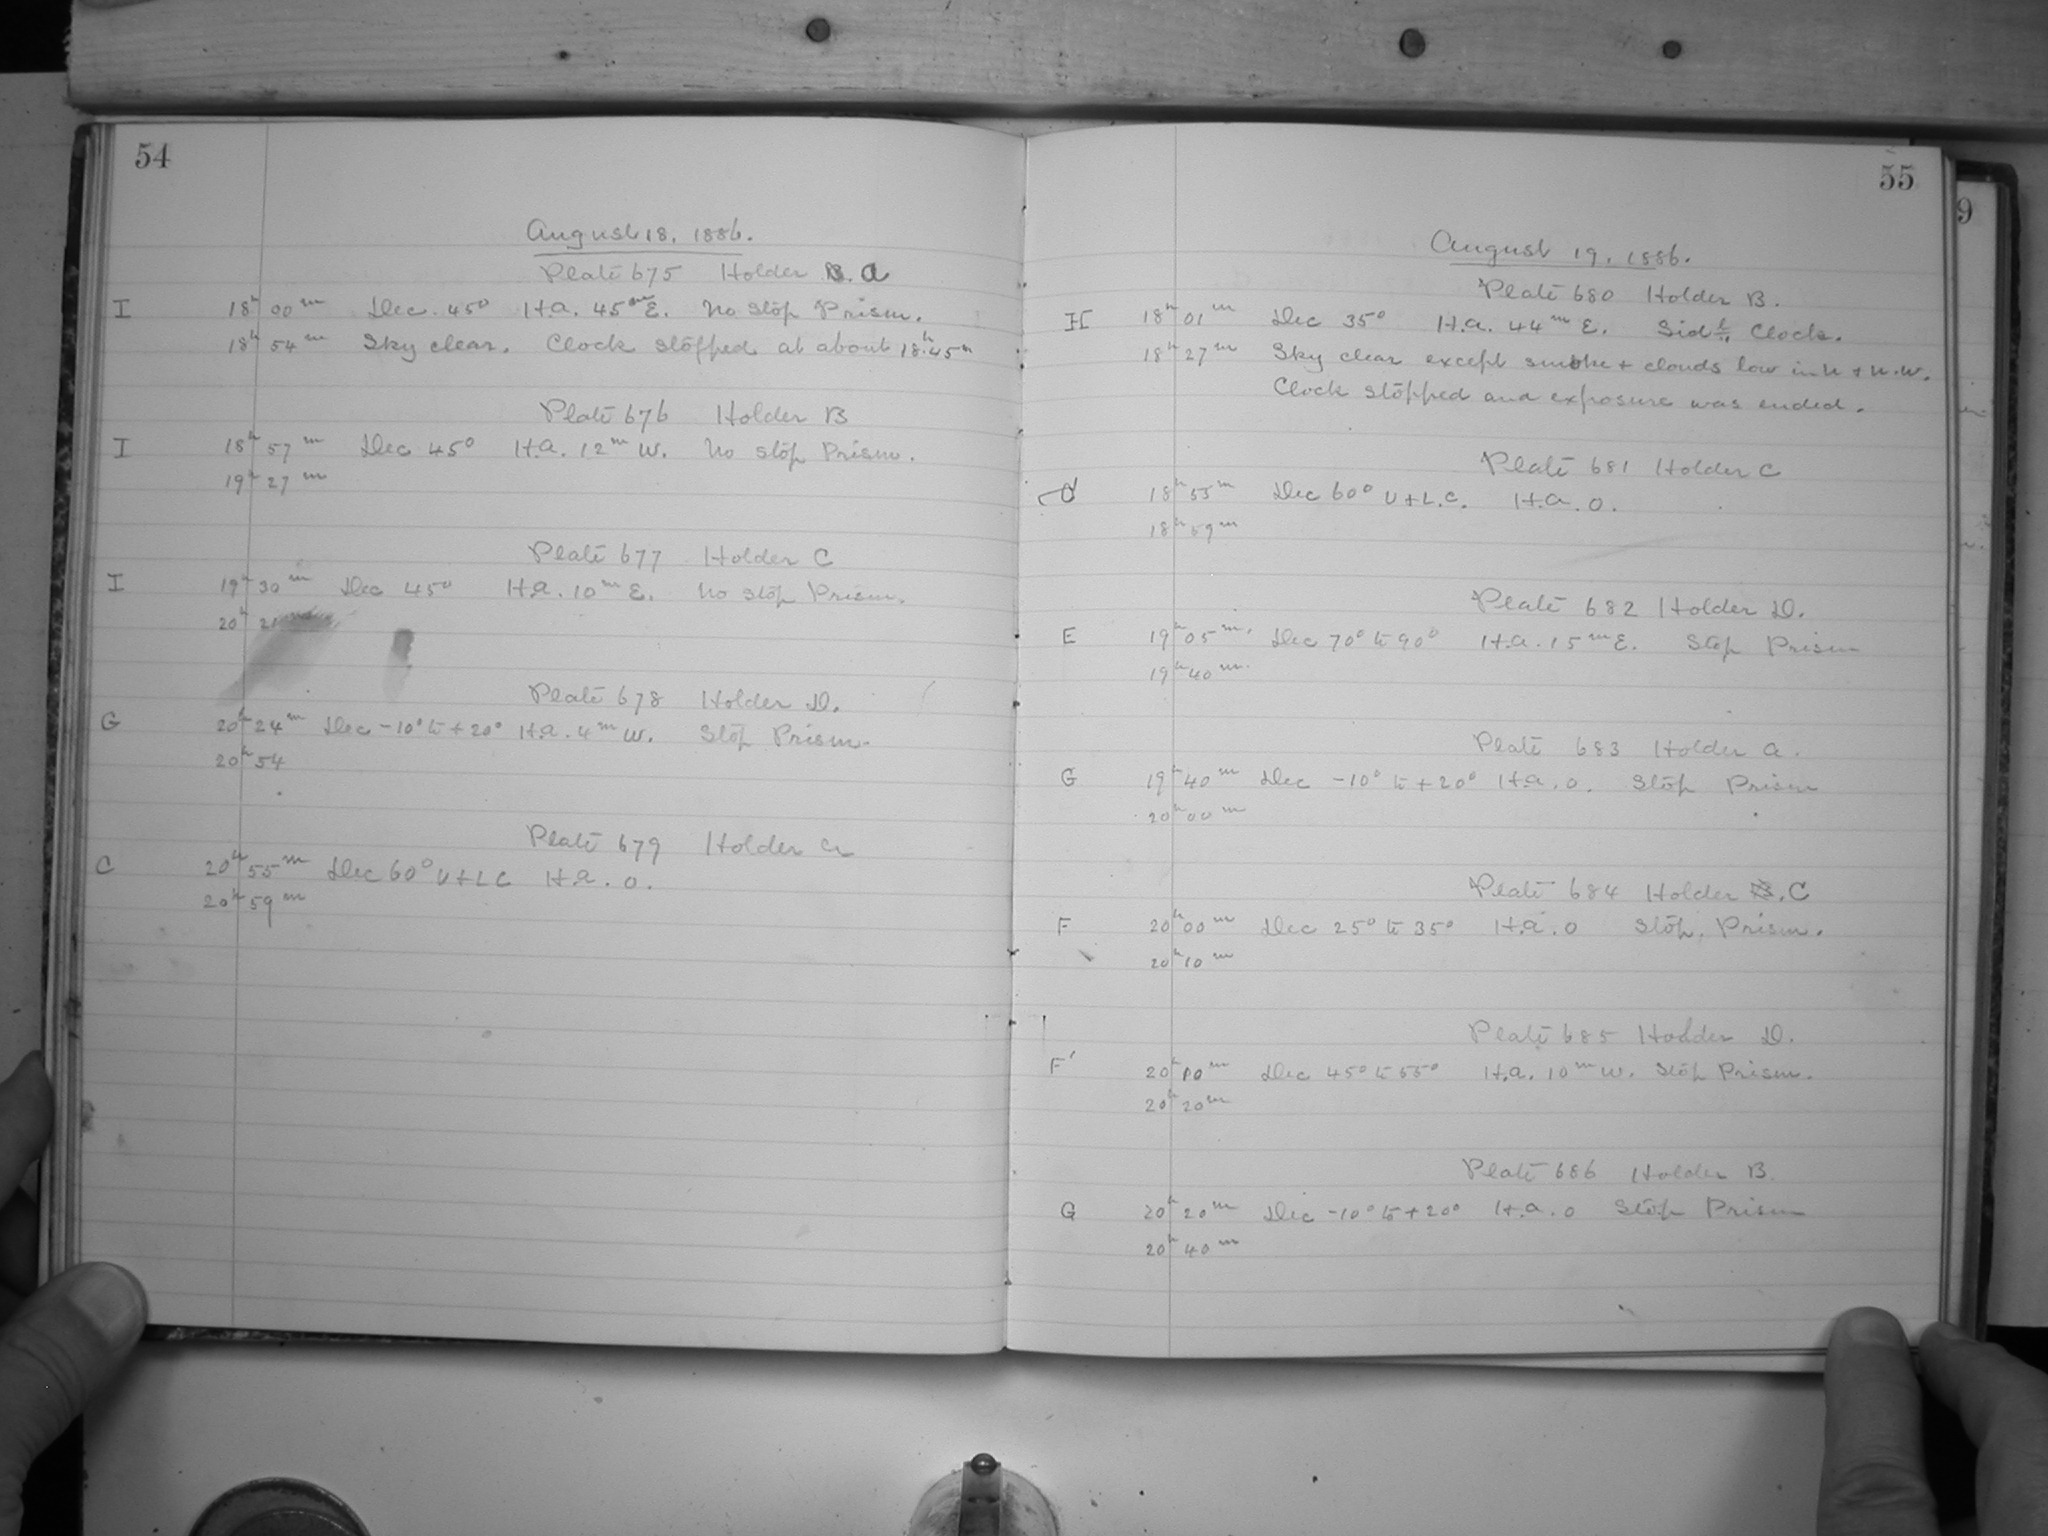 54
August 18, 1886.
Plate 675 Holder B. A
I 18h 00m Dec. 45° H.A. 45m E. No Stop Prism.
18h 54m Sky clear. Clock stopped at about 18h.45m
Plate 676 Holder B
I 18h 57m Dec 45° H.A. 12m W. No stop Prism.
19h 27m
Plate 677 Holder C
I 19h 30m Dec 45° H.A. 10m E. No stop Prism.
20h 21m
Plate 678 Holder D.
G 20h 24m Dec -10° to +20° H.A. 4m W. Stop Prism.
20h 54
Plate 679 Holder
C 20h 55m Dec 60° U+LC H.A. 0.
20h 59m
55
August 19, 1886.
Plate 680 Holder B.
H 18h 01m Dec 35° H.A. 44m E. Sidl. Clock.
18h 27m Sky clear except smoke + clouds low in N + N.W.
Clock stopped and exposure was ended.
Plate 681 Holder C
18h 55m Dec 60° U+L.C. H.A. 0.
18h 59m
Plate 682 Holder D.
E 19h 05m. Dec 70° to 90° H.A. 15m E. Stop Prism
19h 40m.
Plate 683 Holder A.
G 19h 40m Dec -10° to +20° H.A. 0. Stop Prism
20h 00m
Plate 684 Holder B. C
F 20h 00m Dec 25° to 35° H.A. 0 Stop. Prism.
20h 10m
Plate 685 Holder D.
F' 20h 10m Dec 45° to 55° H.A. 10m W. Stop Prism.
20h 20m
Plate 686 Holder B.
G 20h 20m Dec -10° to +20° H.A. 0 Stop Prism
20h 40m
9